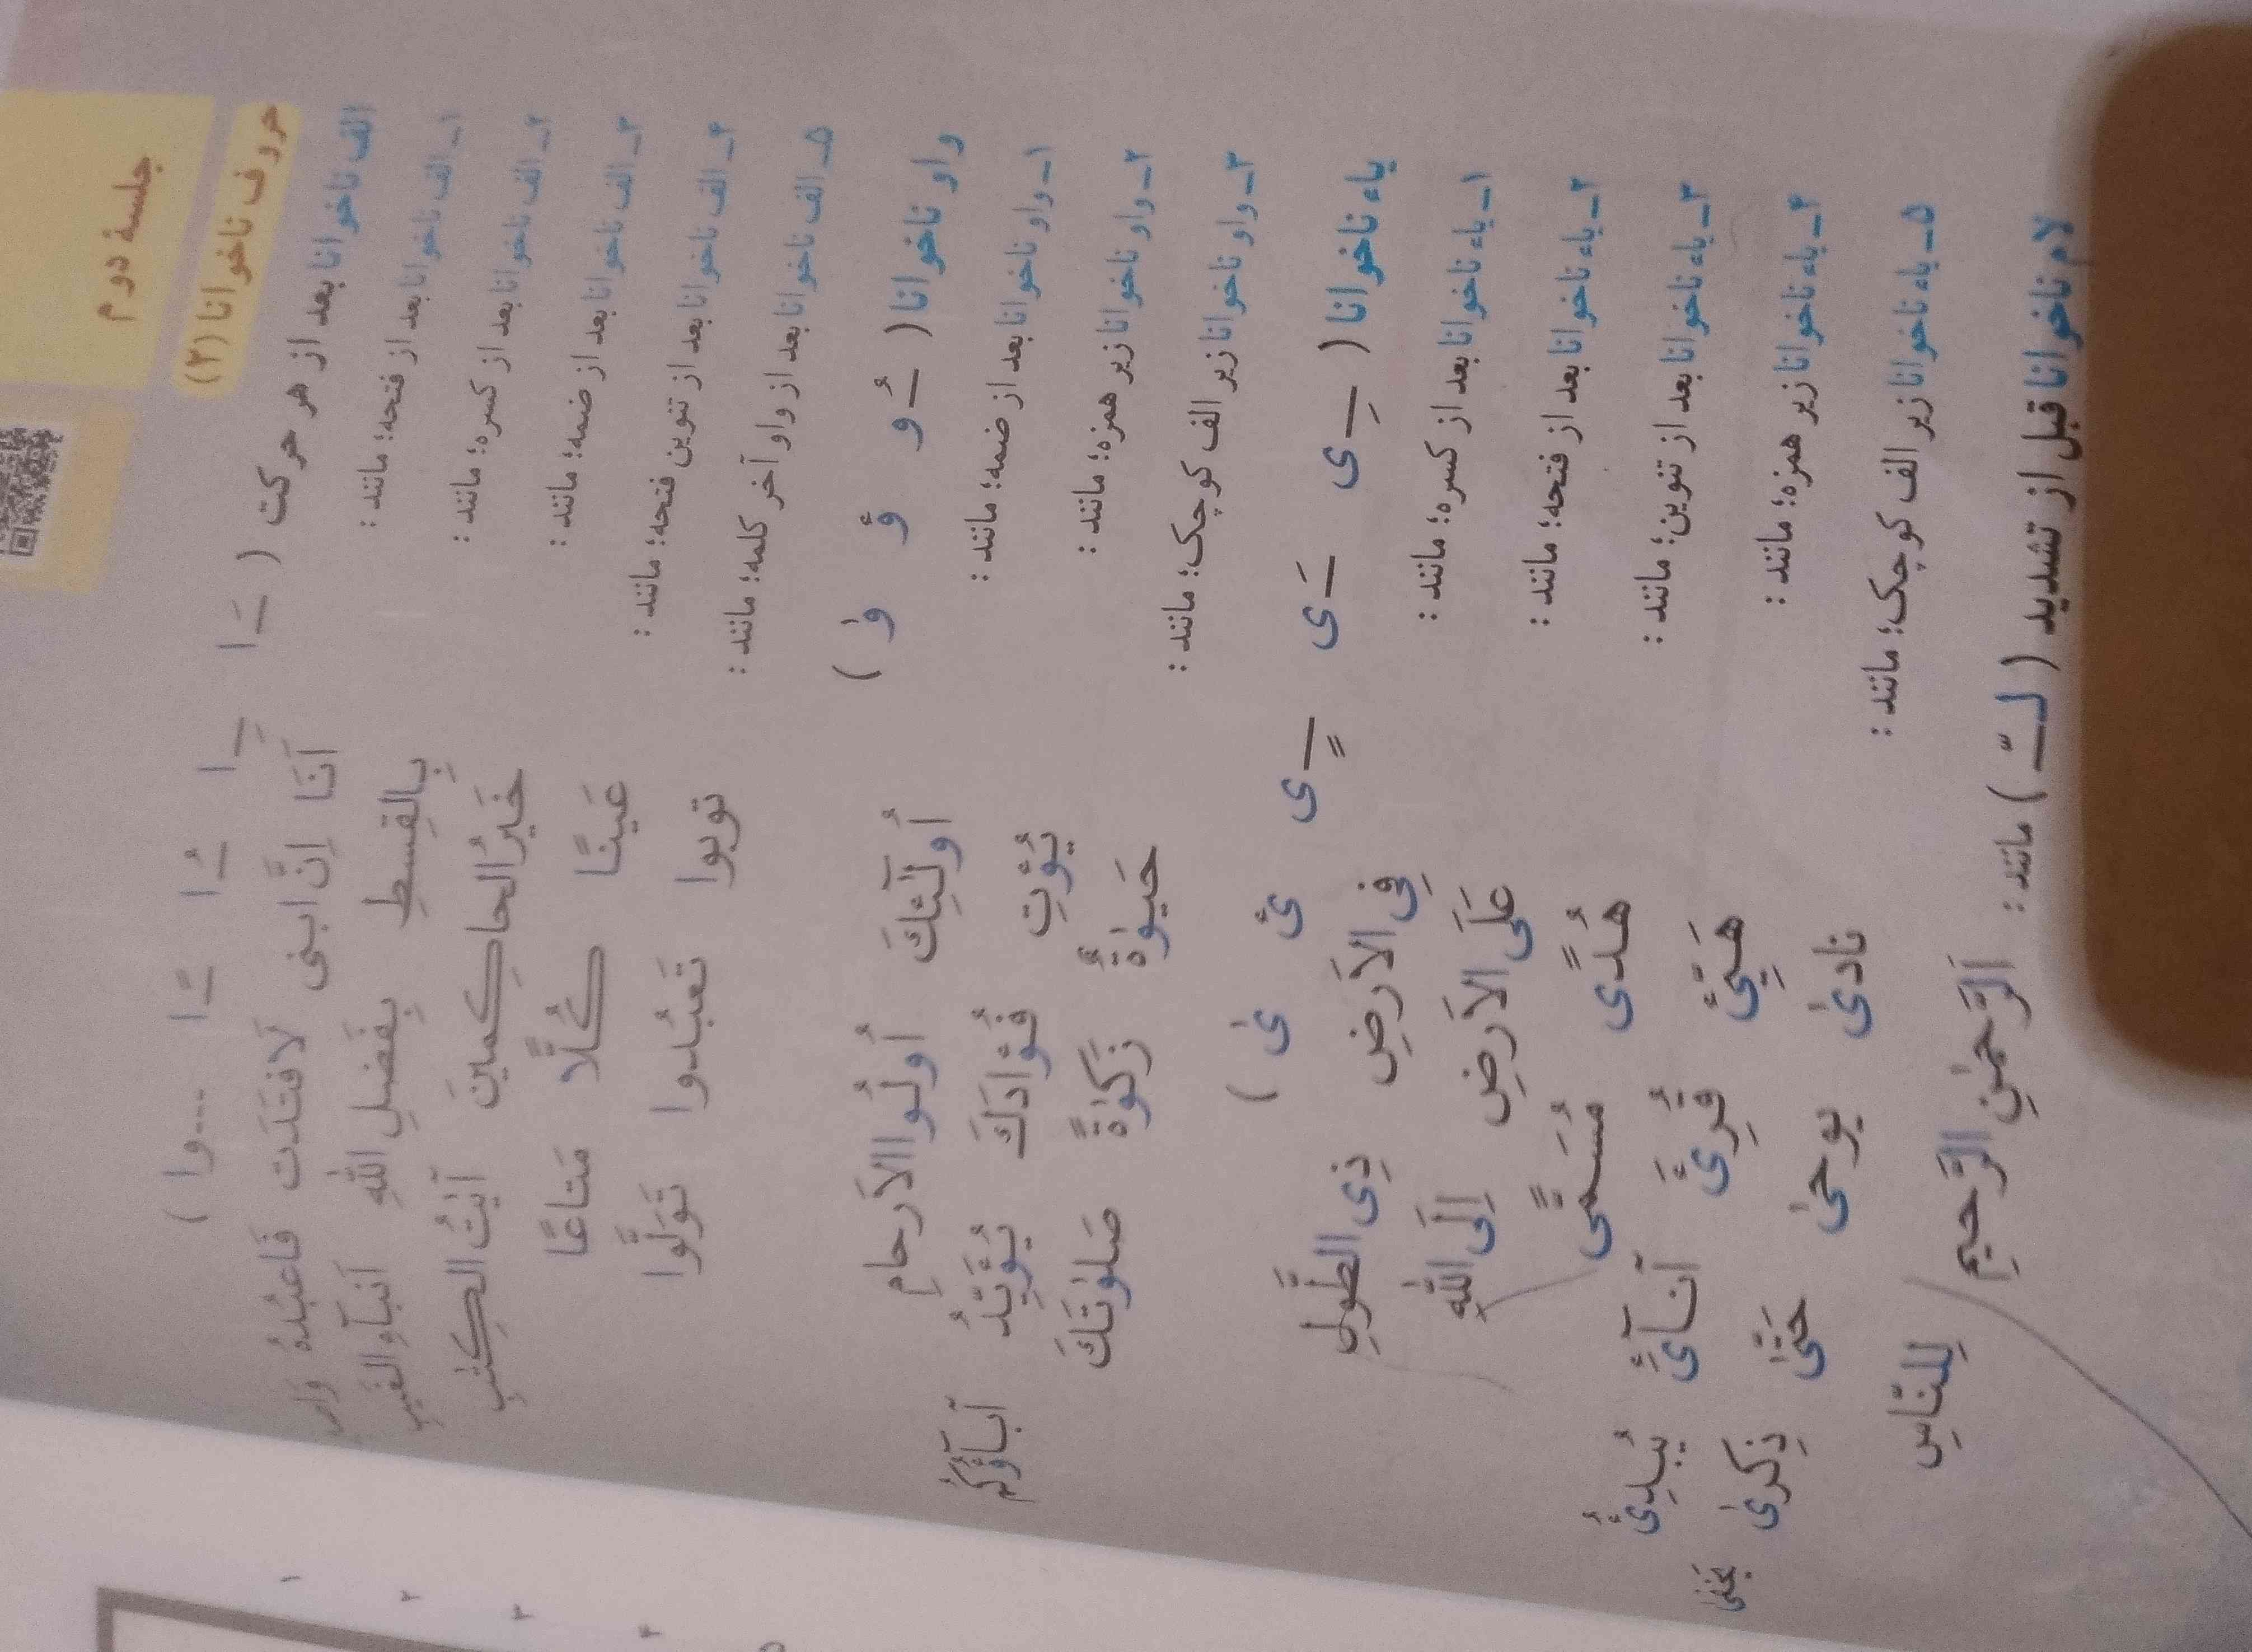 جلسهٔ دوم
حروف ناخوانا (۲)
الف ناخوانا بعد از هر حرکت ( ـَا ـِا ـُا ـًا ...وا )
۱ـ الف ناخوانا بعد از فتحه؛ مانند : اَنَا اِنَّ ابنی لَافتَدَت فَاعبُدهُ
۲ـ الف ناخوانا بعد از کسره؛ مانند : بِالقِسطِ بِفَضلِ اللهِ
۳ـ الف ناخوانا بعد از ضمه؛ مانند : خَیرُ الحاکِمینَ آیٰتُ الکِتٰبِ اَنبآءِ الغَیبِ
۴ـ الف ناخوانا بعد از تنوین فتحه؛ مانند : عَینًا کُلًّا مَتاعًا
۵ـ الف ناخوانا بعد از واو آخر کلمه؛ مانند : توبوا تَعبُدوا تَوَلَّوا
واو ناخوانا ( ـُو ؤ وٰ )
۱ـ واو ناخوانا بعد از ضمه؛ مانند : اُولٰٓئِکَ اُولُوا الاَرحامِ
۲ـ واو ناخوانا زیر همزه؛ مانند : یُؤتِ فُؤادَکَ یُؤَیِّدُ آبآؤُکُم
۳ـ واو ناخوانا زیر الف کوچک؛ مانند : حَیوٰةُ زَکوٰةً صَلوٰتَکَ
یاء ناخوانا ( ـِی ـَی ـًی ئ یٰ )
۱ـ یاء ناخوانا بعد از کسره؛ مانند : فِی الاَرضِ ذِی الطَّولِ
۲ـ یاء ناخوانا بعد از فتحه؛ مانند : عَلَی الاَرضِ اِلَی اللهِ
۳ـ یاء ناخوانا بعد از تنوین؛ مانند : هُدًی مُسَمًّی
۴ـ یاء ناخوانا زیر همزه؛ مانند : هَیِّئ قُرِئَ آنآئِ یُبدِئُ
۵ـ یاء ناخوانا زیر الف کوچک؛ مانند : نادیٰ یوحیٰ حَتّیٰ ذِکریٰ
لام ناخوانا قبل از تشدید ( لـّ ) مانند : اَلرَّحمٰنِ الرَّحیمِ لِلنّاسِ
۱
۲
۳
۴